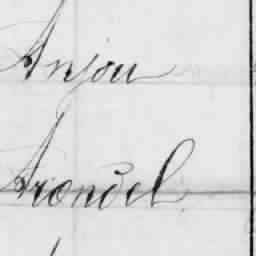 Anjou
Arondel